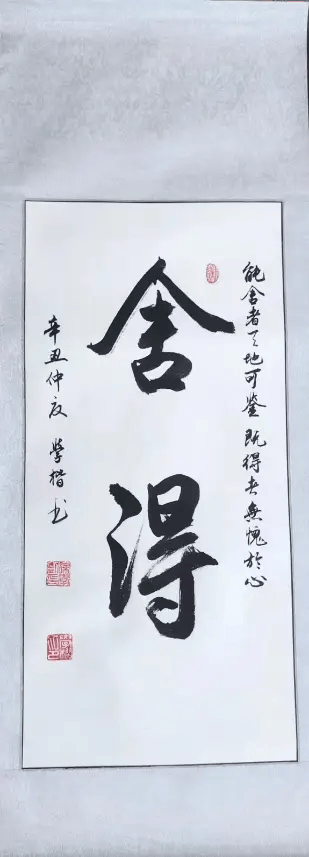 能舍者天地可鉴 既得者無愧於心
舍得
辛丑仲夏 學楷书